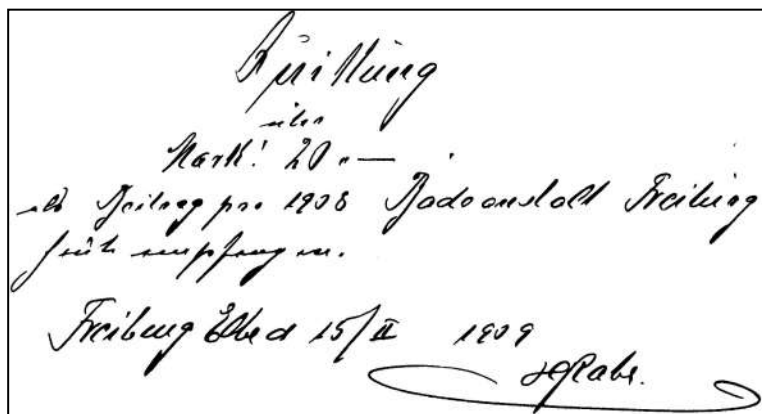 Quittung
über
Mark: 20.—
als Beitrag pro 1908 Badeanstalt Freiburg
heute empfangen.
Freiburg Elbe d 15/II 1909
Rabe.